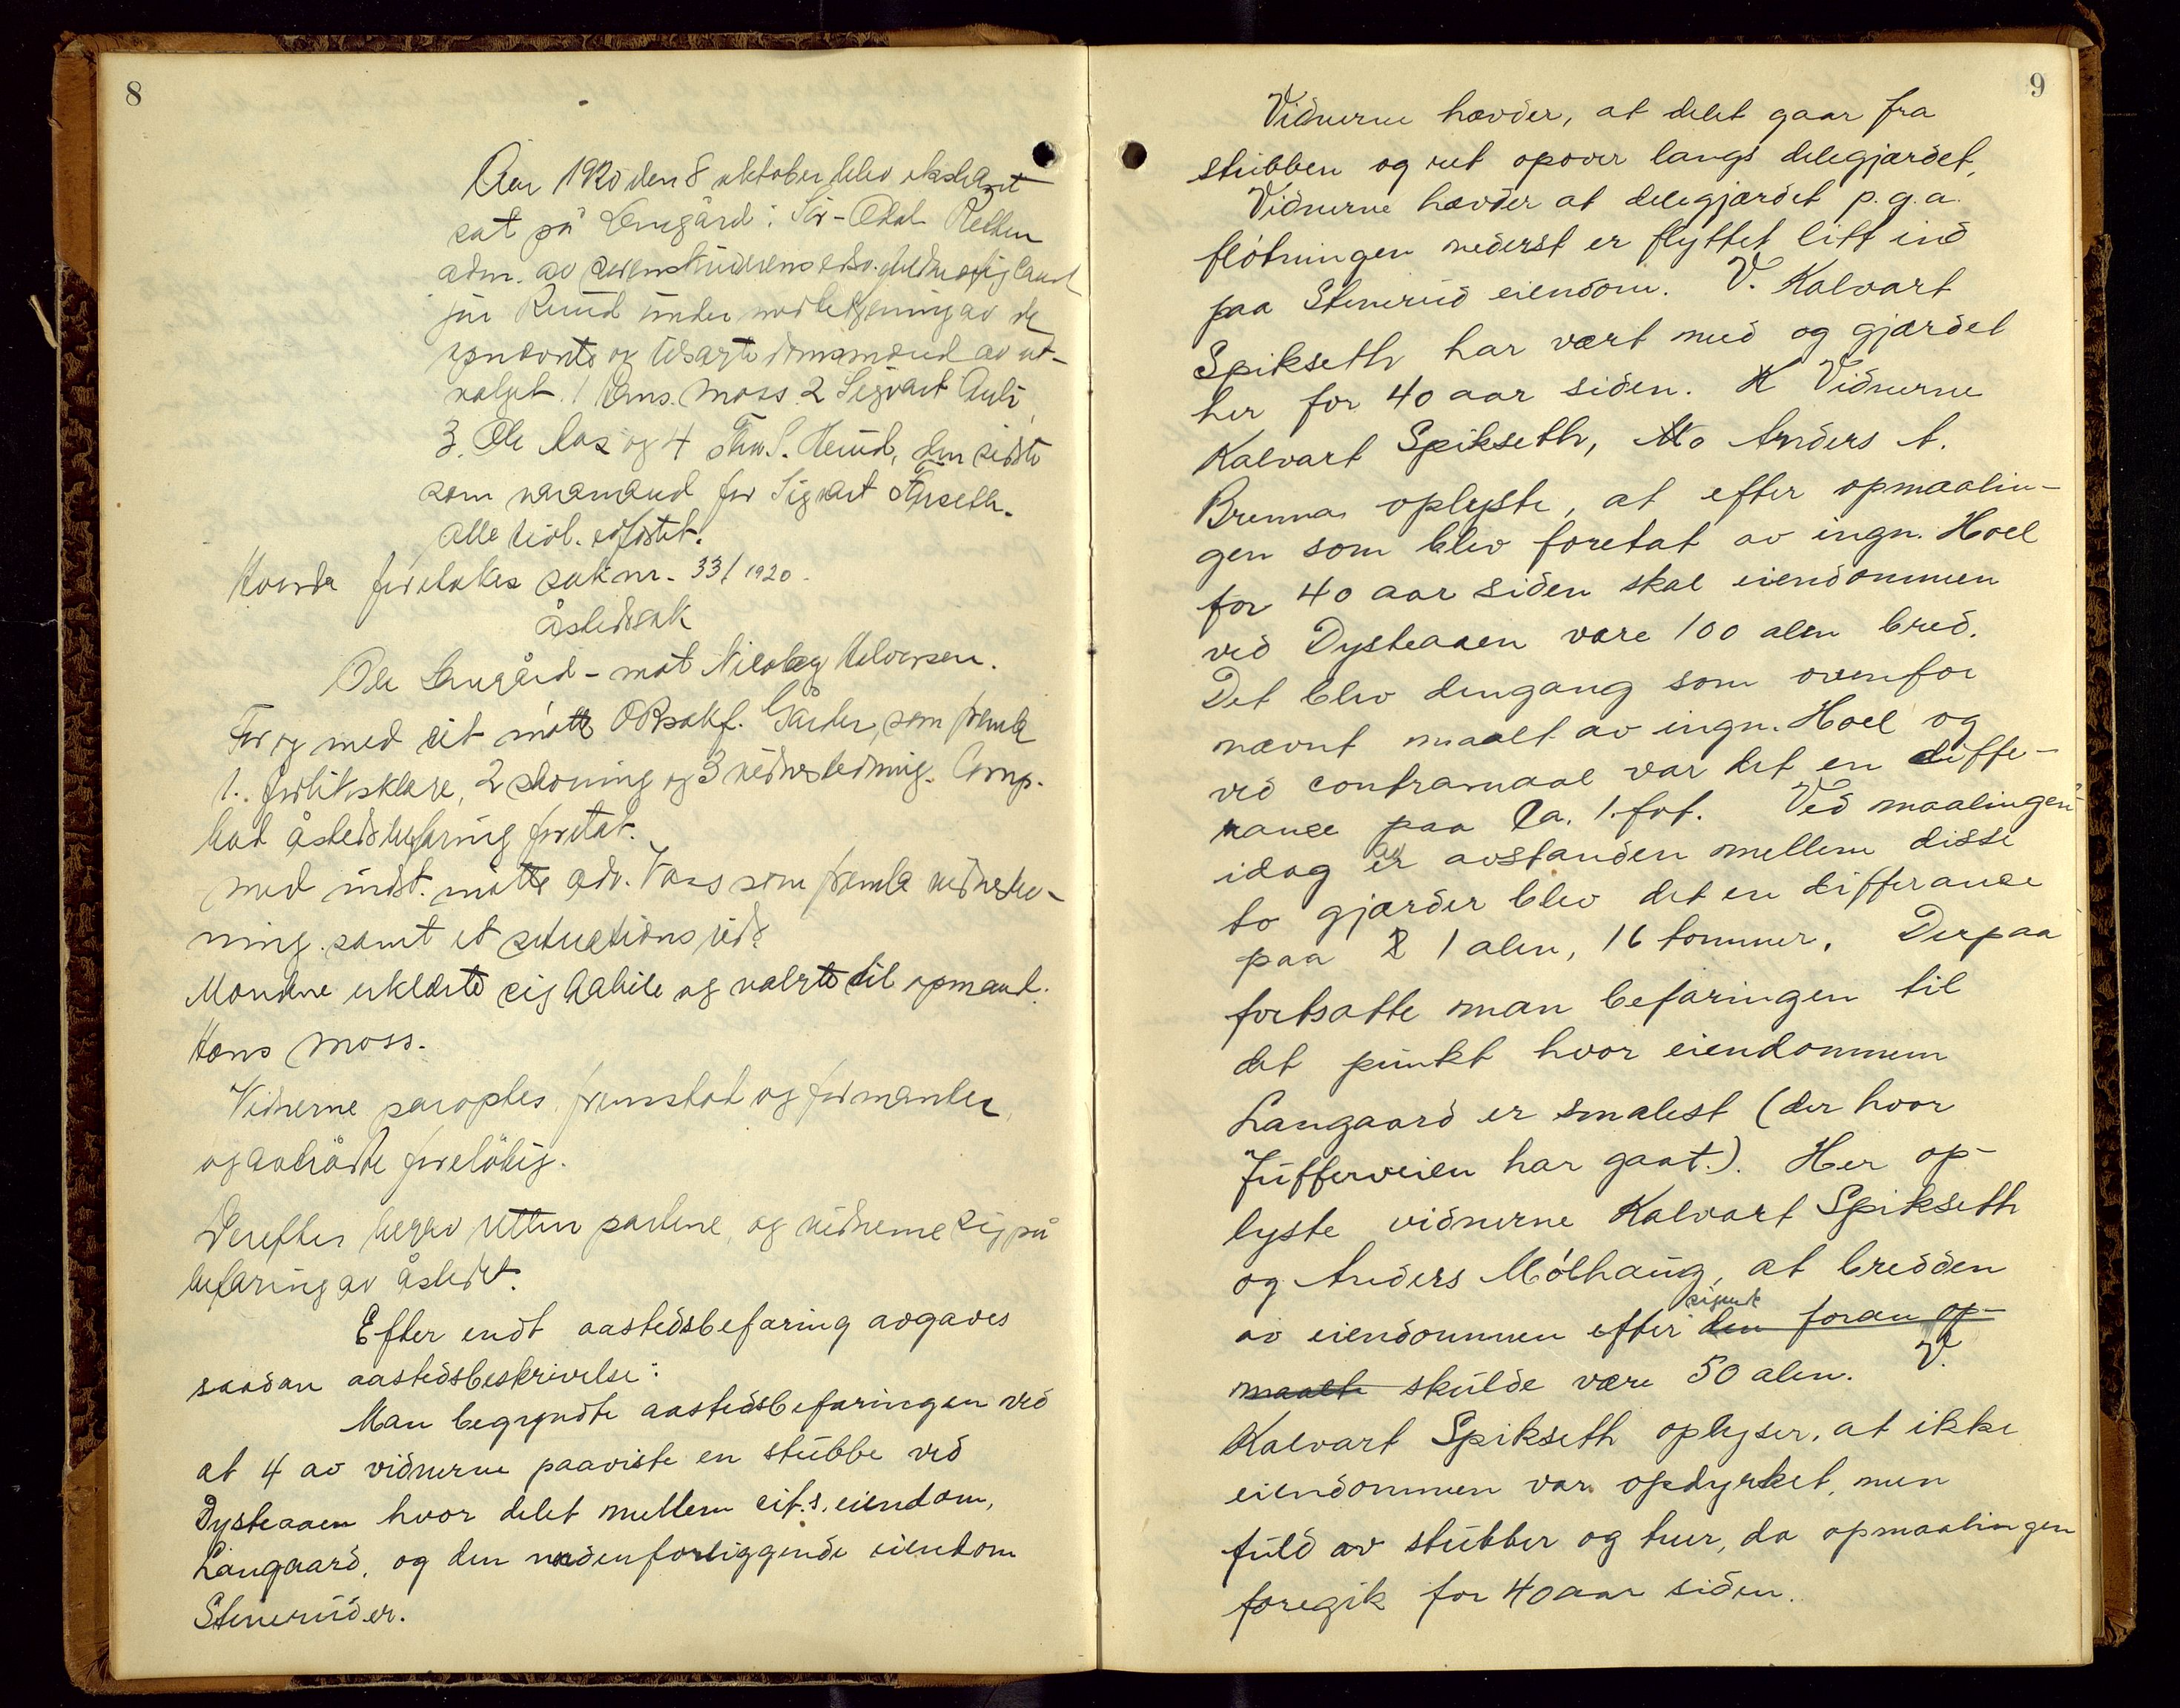 8
Aar 1920 den 8 oktober blev ekstraret
sat på Langård i Sör-Odal. Retten
adm. av sorenskriverens edsv. fuldmægtig cand
jur Ruud under medbetjening av de
opnævnte og tilsagte domsmænd av ut-
valget. 1 Hans Moss 2 Sigvart Auli,
3. Ole og 4 Thv. S. Herud, den sidste
som varamand for Sigvart Furseth.
Alle tidl. edfæstet.
Hvorda foretokes sak nr. 33/1920.
åstedssak
Ole Langård - mot Nicolay Halvorsen.
For og med cit mötte ORsakf. Gårder, som fremla
1. forliksklage, 2 stevning og 3 vidnestevning. Comp.
bad åstedsbefaring foretat.
Med indst. mötte adv. Vass som fremla vidnestev-
ning samt et situations rids
Mændene erklærte sig habile og valgte til opmand:
Hans Moss.
Vidnerne paroptes fremstod og formantes
og avtrådte foreløbig.
Derefter begav retten partene, og vidnerne sig på
befaring av åstedet.
Efter endt aastedsbefaring avgaves
saadan aastedsbeskrivelse:
Man begyndte aastedsbefaringen ved
at 4 av vidnerne paaviste en stubbe ved
Dysteaaen hvor delet mellem cit.s. eiendom,
Langaard, og den nedenforliggende eiendom
Stenerud er.
9
Vidnerne hævder, at delet gaar fra
stubben og ret opover langs delegjærdet,
Vidnerne hævder at delegjærdet p.g.a.
fløtningen nederst er flyttet litt ind
paa Stenerud eiendom. V. Kalvart
Spikseth har vært med og gjærdet
her for 40 aar siden. Vidnerne
Kalvart Spikseth, Mo Anders A.
Brenna oplyste, at efter opmaalin-
gen som blev foretat av ingn. Hoel
for 40 aar siden skal eiendommen
ved Dysteaaen være 100 alen bred.
Det blev dengang som ovenfor
nævnt maalt av ingn. Hoel og
ved contramaal var det en diffe-
rance paa ca. 1. fot. Ved maalingen
idag av avstanden mellem disse
to gjærder blev det en differance
paa 2 1 alen, 16 tommer. Derpaa
fortsatte man befaringen til
det punkt hvor eiendommen
Langaard er smalest (der hvor
Jufferveien har gaat.). Her op-
lyste vidnerne Kalvart Spikseth
og Anders Mölhaug, at bredden
av eiendommen efter sigende den foran op-
maalte skulde være 50 alen. V.
Kalvart Spikseth oplyser, at ikke
eiendommen var opdyrket, men
fuld av stubber og tuer, da opmaalingen
foregik for 40 aar siden.